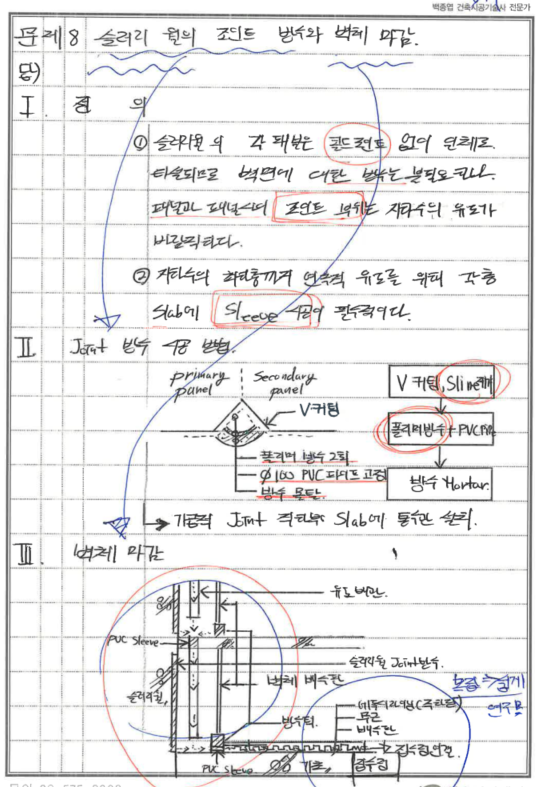 백종엽 건축시공기술사 전문가
문제 8 슬러리 월의 조인트 방수와 벽체 마감.
답)
I. 정 의
① 슬러리월의 각 패널은 콜드죤트 없이 연속으로
타설되므로 벽면에 대한 방수는 불필요하나
패널과 패널사이 조인트 부위는 지하수의 유도가
바람직하다.
② 지하수의 최하층까지 연속적 유도를 위해 각층
Slab에 Sleeve 시공이 필수적이다.
II. Joint 방수 시공 방법.
primary panel
Secondary panel
V커팅
폴리머 방수 2회
Ø100 PVC 파이프 고정
방수 몰탈
V 커팅, Slime제거
폴리머방수 + PVC
방수 Mortar.
가급적 Joint 직하부 Slab에 통수관 설치.
III. 벽체 마감
유도배관.
PVC Sleeve
슬러리월 Joint방수.
슬러리월
벽체 배수판
방수턱
무근
배수판
집수정
PVC Sleeve
기초